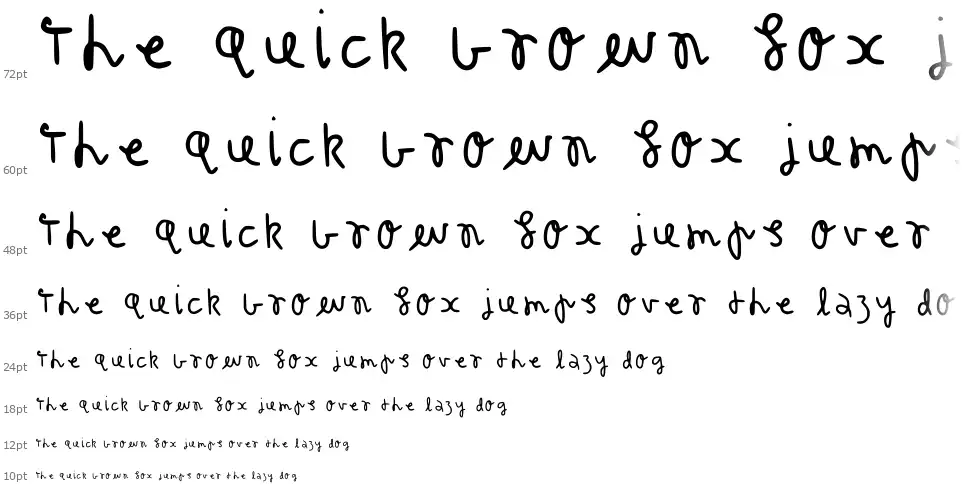 The quick brown fox j
72pt
The quick brown fox jump
60pt
The quick brown fox jumps over
48pt
The quick brown fox jumps over the lazy do
36pt
The quick brown fox jumps over the lazy dog
24pt
The quick brown fox jumps over the lazy dog
18pt
The quick brown fox jumps over the lazy dog
12pt
The quick brown fox jumps over the lazy dog
10pt